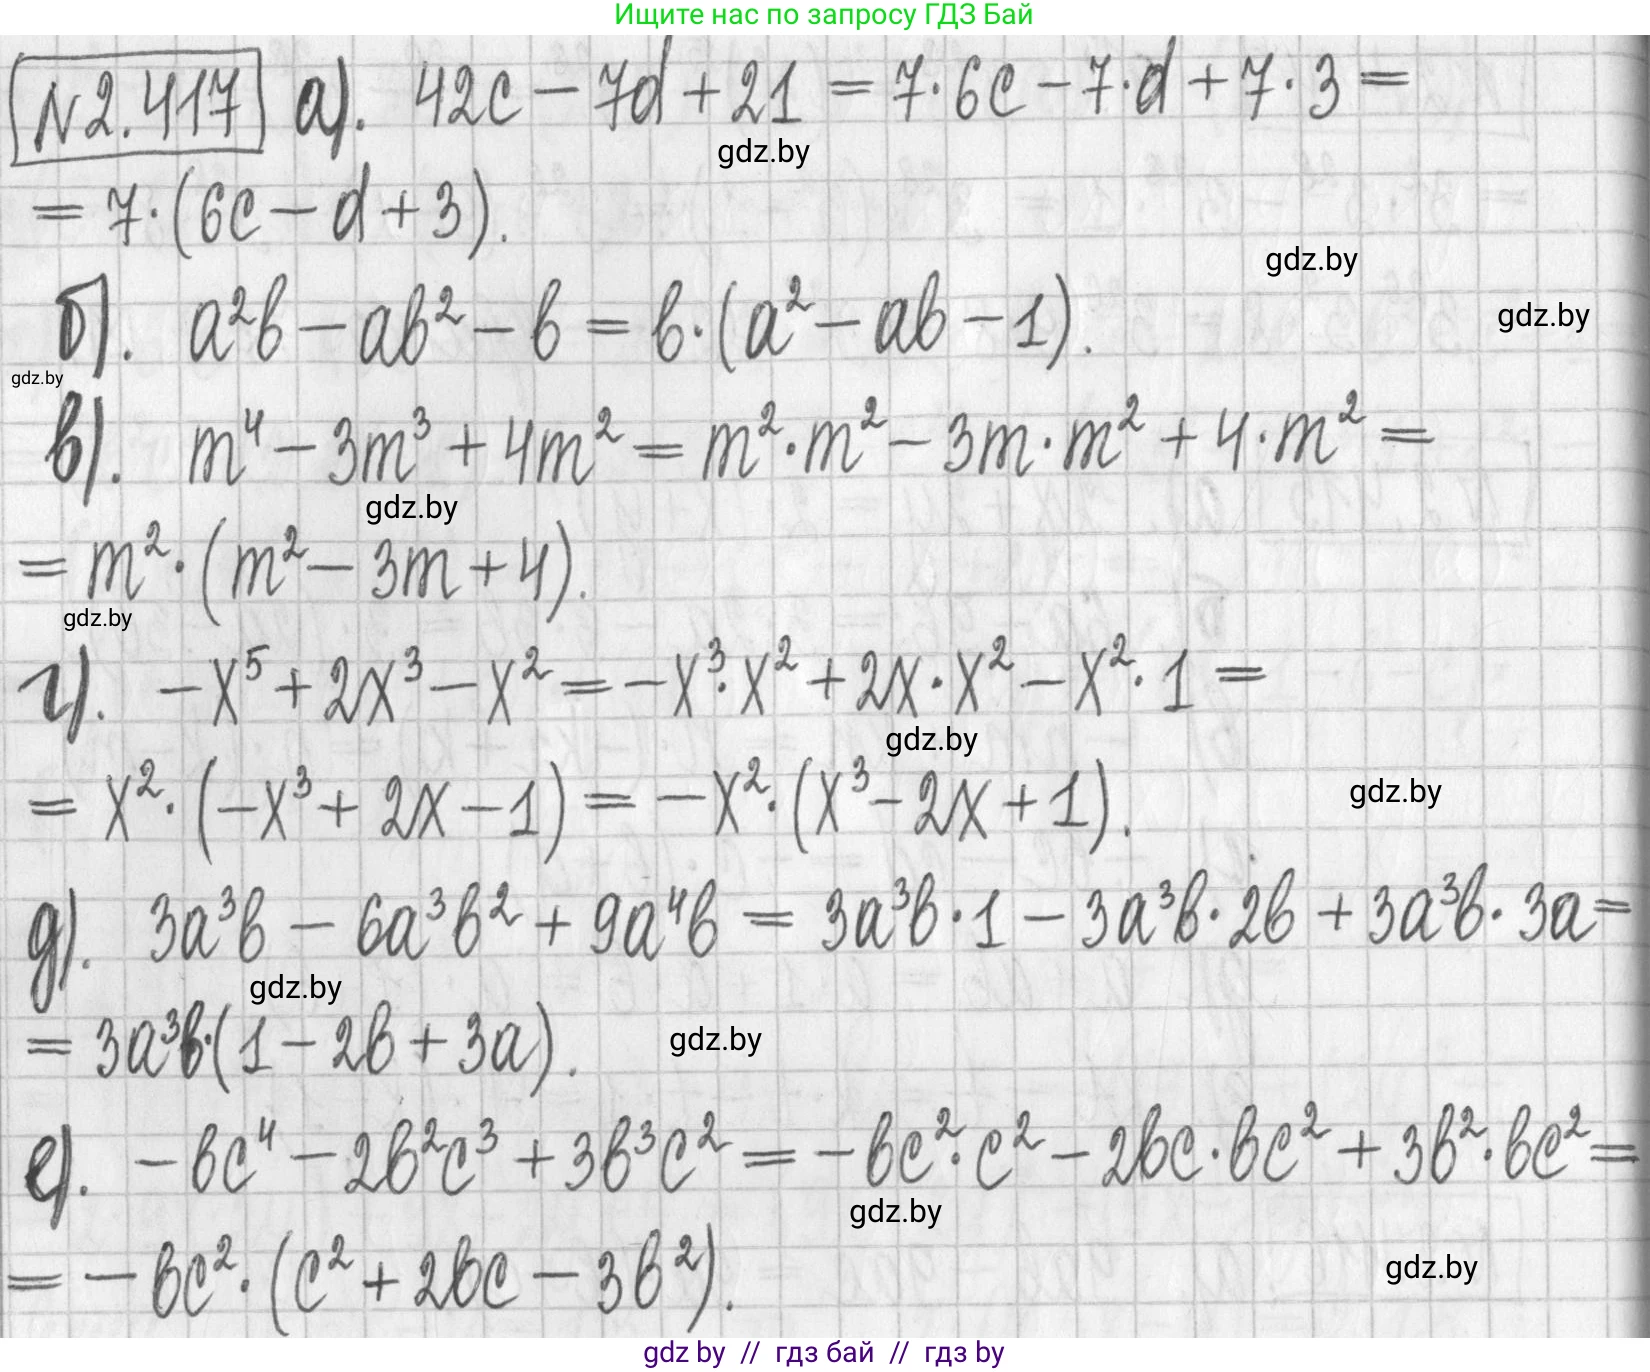 Ищите нас по запросу ГДЗ Бай
№2.417 а). 42c - 7d + 21 = 7·6c - 7·d + 7·3 =
gdz.by
= 7·(6c - d + 3).
gdz.by
б). a²b - ab² - b = b·(a² - ab - 1).
gdz.by
gdz.by
в). m⁴ - 3m³ + 4m² = m²·m² - 3m·m² + 4·m² =
gdz.by
= m²·(m² - 3m + 4).
gdz.by
г). -x⁵ + 2x³ - x² = -x³·x² + 2x·x² - x²·1 =
gdz.by
= x²·(-x³ + 2x - 1) = -x²·(x³ - 2x + 1).
gdz.by
д). 3a³b - 6a³b² + 9a⁴b = 3a³b·1 - 3a³b·2b + 3a³b·3a =
gdz.by
= 3a³b·(1 - 2b + 3a).
gdz.by
е). -bc⁴ - 2b²c³ + 3b³c² = -bc²·c² - 2bc·bc² + 3b²·bc² =
gdz.by
= -bc²·(c² + 2bc - 3b²).
gdz.by
gdz by // гдз бай // гдз by